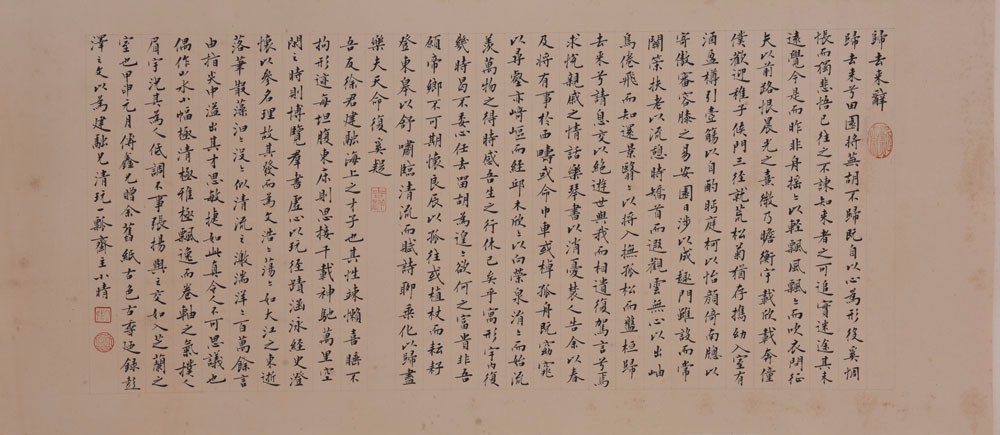 歸去來辭
歸去來兮田園將蕪胡不歸既自以心為形役奚惆
悵而獨悲悟已往之不諫知來者之可追實迷途其未
遠覺今是而昨非舟搖搖以輕颺風飄飄而吹衣問征
夫以前路恨晨光之熹微乃瞻衡宇載欣載奔僮
僕歡迎稚子候門三徑就荒松菊猶存攜幼入室有
酒盈樽引壺觴以自酌眄庭柯以怡顏倚南牕以
寄傲審容膝之易安園日涉以成趣門雖設而常
關策扶老以流憩時矯首而遐觀雲無心以出岫
鳥倦飛而知還景翳翳以將入撫孤松而盤桓歸
去來兮請息交以絕遊世與我而相遺復駕言兮焉
求悅親戚之情話樂琴書以消憂農人告余以春
及將有事於西疇或命巾車或棹孤舟既窈窕
以尋壑亦崎嶇而經邱木欣欣以向榮泉涓涓而始流
羨萬物之得時感吾生之行休已矣乎寓形宇內復
幾時曷不委心任去留胡為遑遑欲何之富貴非吾
願帝鄉不可期懷良辰以孤往或植杖而耘耔
登東皋以舒嘯臨清流而賦詩聊乘化以歸盡
樂夫天命復奚疑
吾友徐君建融海上之才子也其性疎懶喜睡不
拘形迹每坦腹東床則思接千載神馳萬里空
閑之時則博覽羣書虛心以玩徑蹟涵泳經史澄
懷以參名理故其發而為文浩浩蕩蕩如大江之東逝
落筆散藻汩汩沒沒似清流之激湍洋洋百萬餘言
由指尖中溢出其才思敏捷如此真令人不可思議也
偶作山水小幅極清極雅極飄逸而卷軸之氣樸人
眉宇況其為人低調不事張揚與之交如入芝蘭之
室也甲申元月 鑫兄贈余舊紙古色古香 錄彭
澤之文以為建融兄清玩 齋主小晴